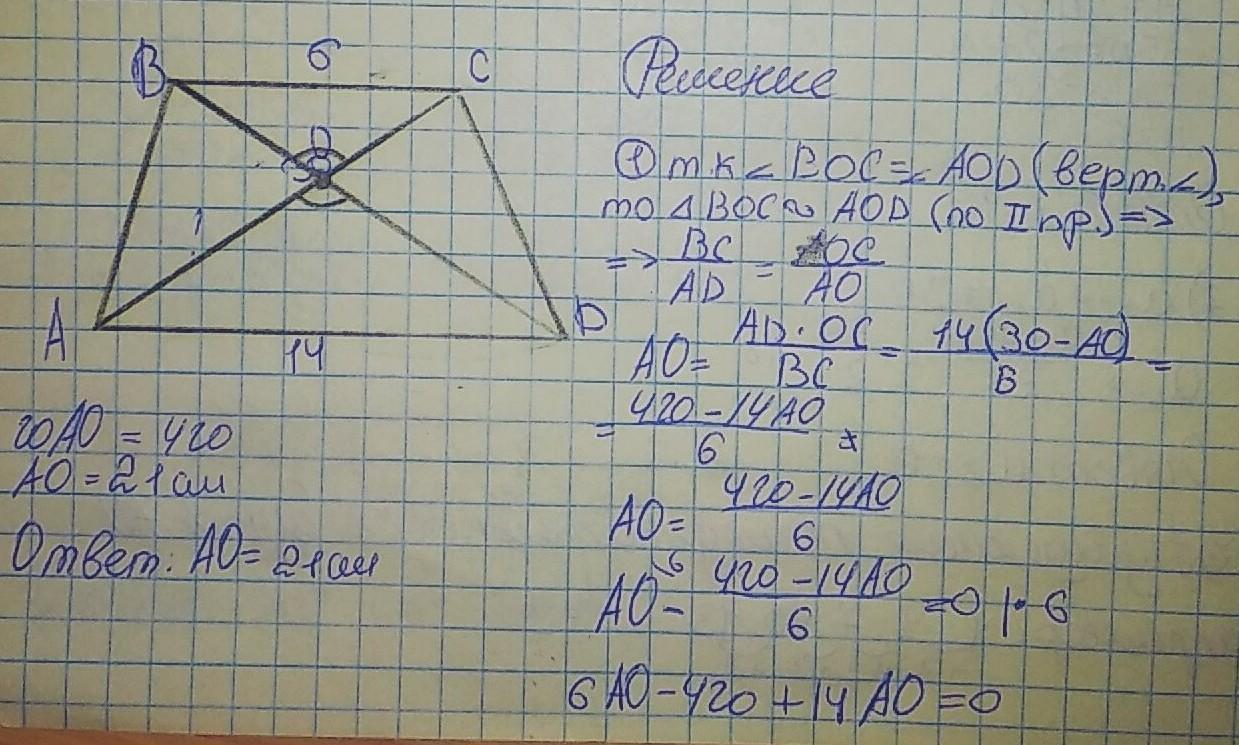 B 6 C
O
A 14 D
Решение
① т.к ∠ BOC = ∠ AOD (верт.∠),
то △ BOC ~ AOD (по II пр.) =>
=> BC/AD = OC/AO
AO = AD · OC/BC = 14(30 - AO)/6 =
= 420 - 14AO/6
AO = 420 - 14AO/6
AO - 420 - 14AO/6 = 0 | · 6
6 AO - 420 + 14 AO = 0
20AO = 420
AO = 21 см
Ответ: AO = 21 см